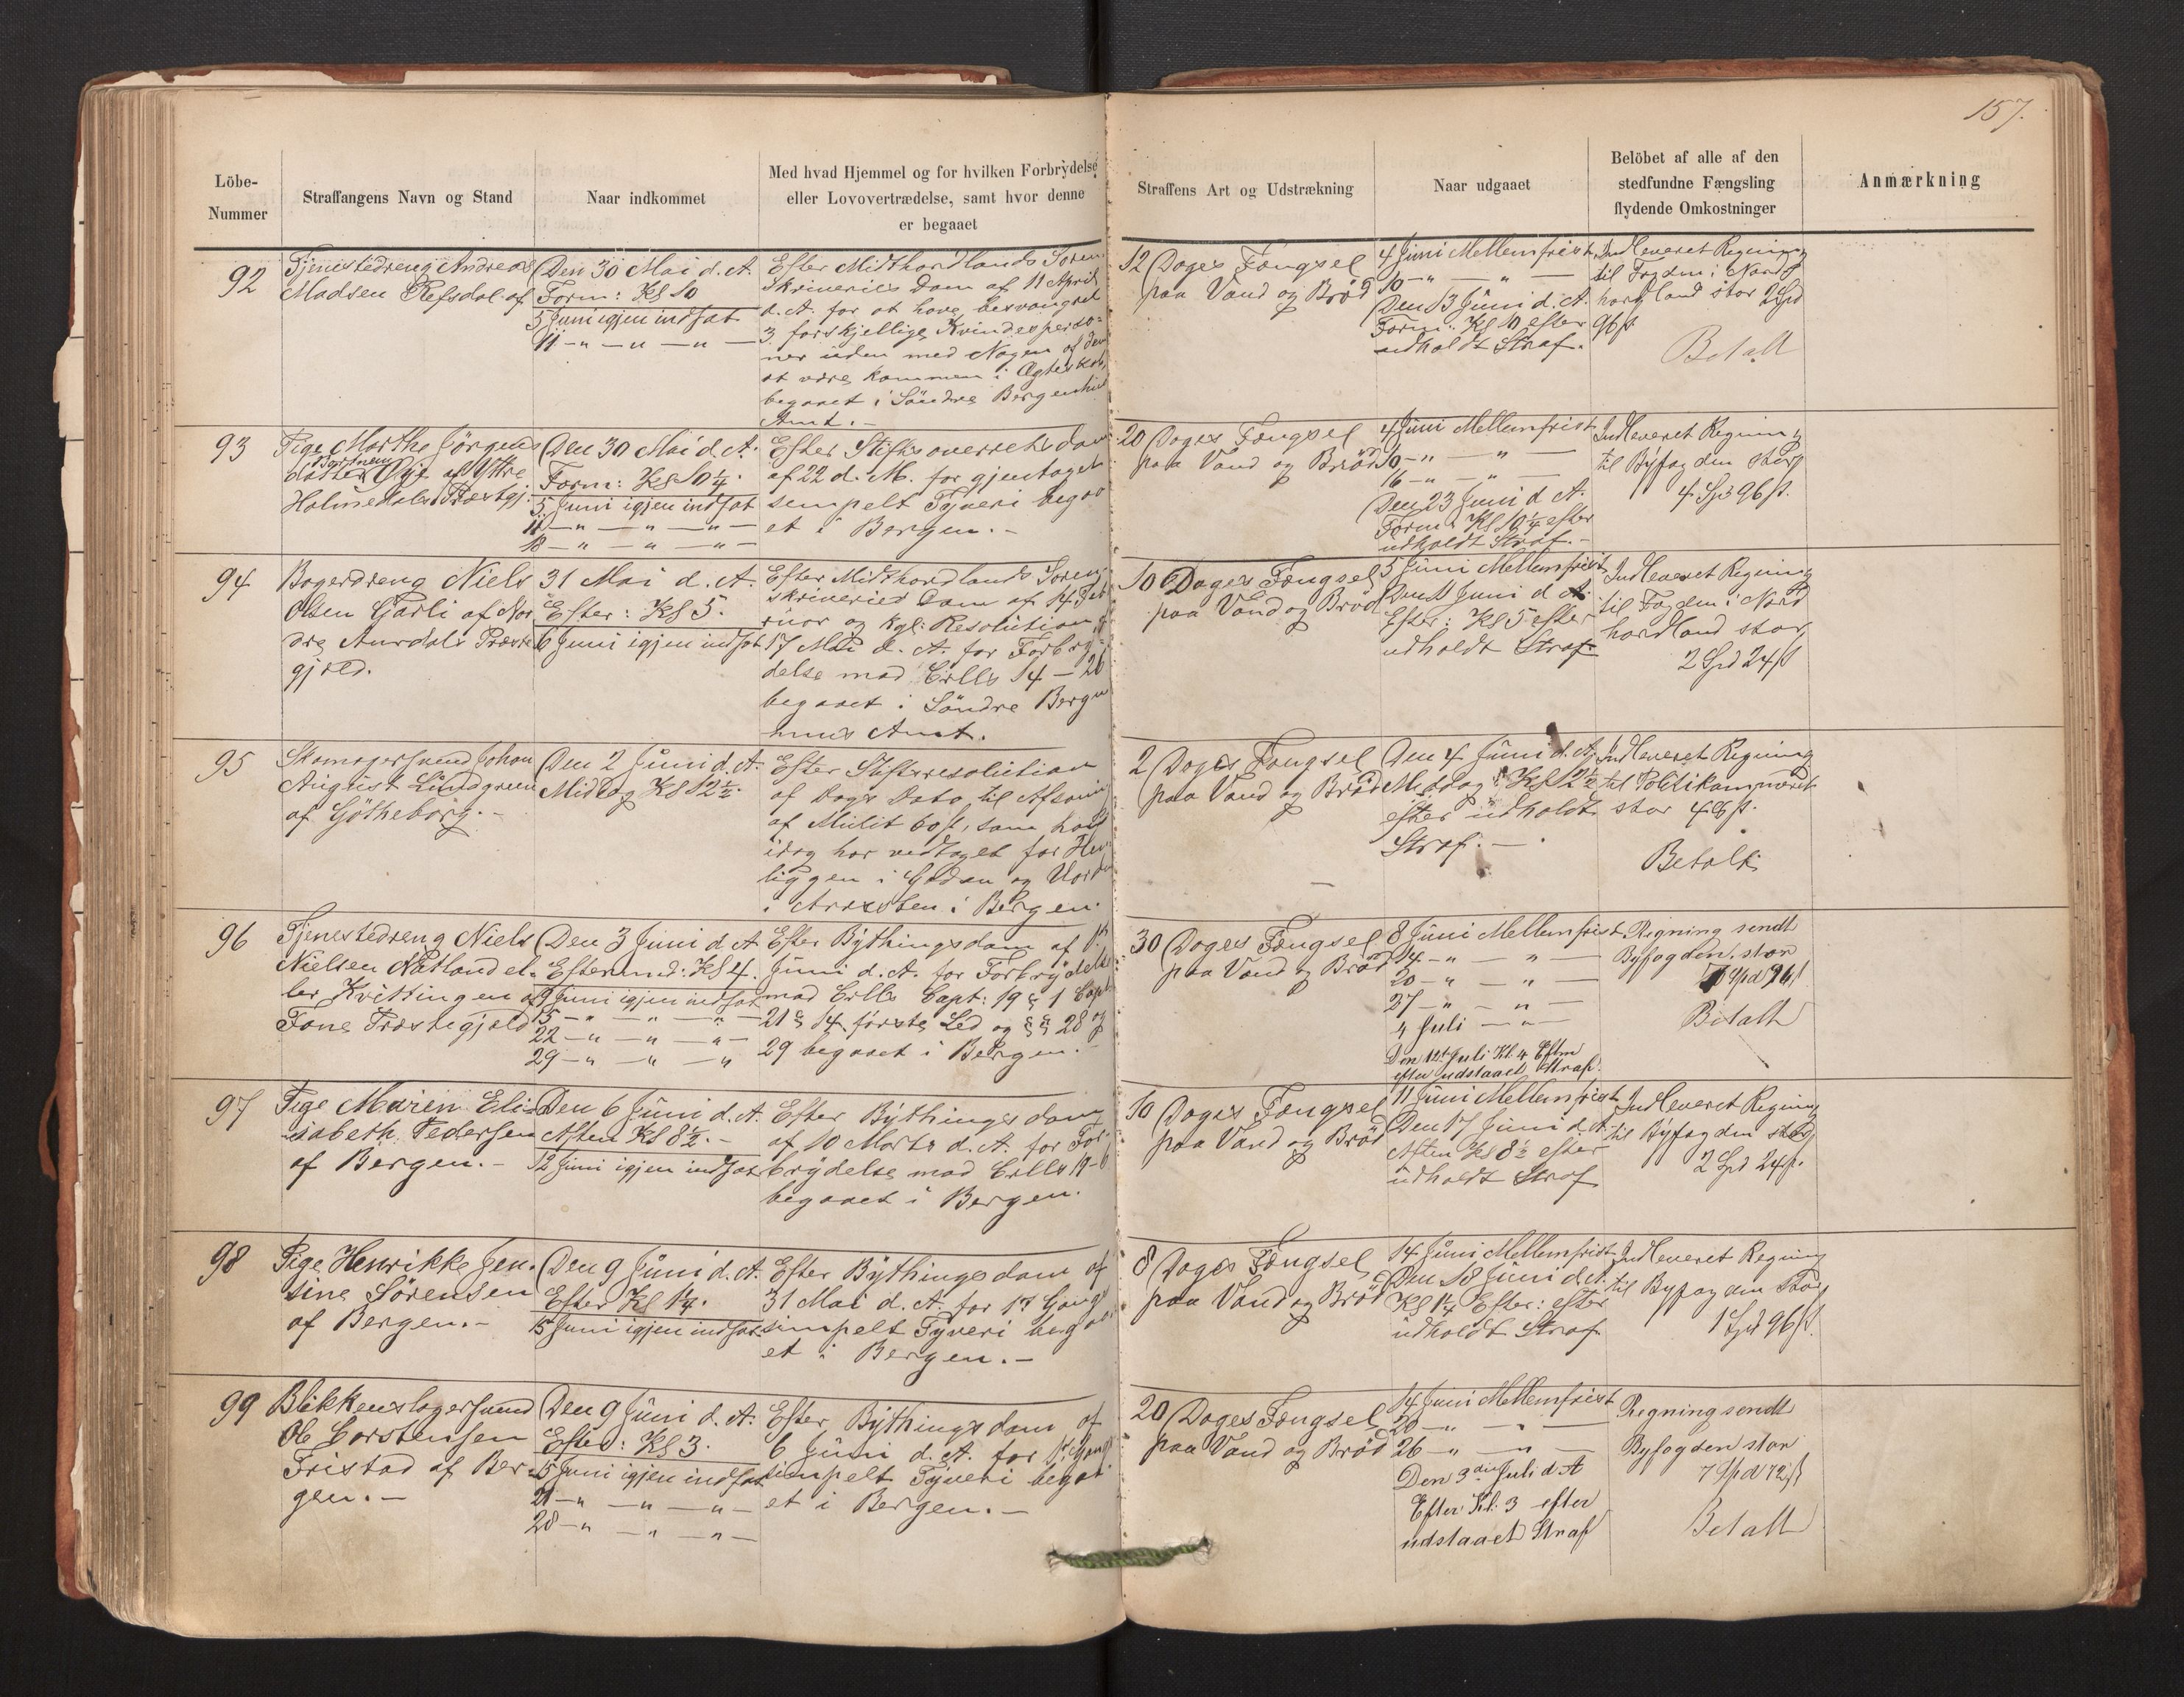 157.
Löbe-
Nummer
Straffangens Navn og Stand
Naar indkommet
Med hvad Hjemmel og for hvilken Forbrydelse
eller Lovovertrædelse, samt hvor denne
er begaaet
Straffens Art og Udstrækning
Naar udgaaet
Belöbet af alle af den
stedfundne Fængsling
flydende Omkostninger
Anmærkning
92
Tjenestedreng Andreas
Madsen Refsdal af
Den 30 Mai d. A.
Form: Kl 10
5 Juni igjen indsat
11 — " — " — " —
Efter Midthordlands Soren-
skriveries Dom af 11 April
d. A. for at have besvangret
3 forskjellige Kvindesperso-
ner uden med Nogen af dem
at være kommen i Ægteskab,
begaaet i Söndre Bergenhus
Amt. —
12 Dages Fængsel
paa Vand og Bröd
4 Juni Mellemfrist
10 — " — " —
Den 13 Juni d. A.
Form: Kl 10 efter
udholdt Straf.
Indleveret Regning
til Fogden i Nord
hordland stor 2 Spd
96 ß.
Betalt
93
Pige Marthe Jörgens
datter Øye af Yttre
Holmedals Præstgj.
Den 30 Mai d. A.
Form: Kl 10 1/4.
5 Juni igjen indsat
11 — " — " — " —
18 — " — " — " —
Efter Stiftsoverrets dom
af 22 d. M. for gjentaget
simpelt Tyveri begaa
et i Bergen. —
20 Dages Fængsel
paa Vand og Bröd
4 Juni Mellemfrist
10 — " — " —
16 — " — " —
Den 23 Juni d. A.
Form: Kl 10 1/4 efter
udholdt Straf. —
Indleveret Regning
til Byfogden stor
4 Spd 96 ß.
94
Bagerdreng Niels
Olsen Garli af Nor
dre Aurdals Præste
gjæld.
31 Mai d. A.
Efter: Kl 5.
6 Juni igjen indsat
Efter Midthordlands Soren-
skriveries Dom af 14 Feb
ruar og kgl: Resolution af
17 Mai d. A. for Forbry-
delse mod Crlls 14 — 26
begaaet i Söndre Bergen
huus Amt.
10 Dages Fængsel
paa Vand og Bröd
5 Juni Mellemfrist
Den 11 Juni d. A.
Efter: Kl 5 efter
udholdt Straf
Indleveret Regning
til Fogden i Nord
hordland stor
2 Spd 24 ß
95
Skomagersvend Johan
August Lindgreen
af Götheborg. —
Den 2 Juni d. A.
Middag Kl 12 1/2.
Efter Stiftsresolution
af Dags Dato til Afsoning
af Mulct 60 ß, som han
idag har vedtaget for Hen-
liggen i Gaden og Uorden
i Arresten i Bergen.
2 Dages Fængsel
paa Vand og Bröd
Den 4 Juni d. A.
Middag Kl 12 1/2
efter udholdt
Straf. —
Indleveret Regning
til Politikammeret
stor 46 ß.
Betalt
96
Tjenestedreng Niels
Nielsen Natland el-
ler Kvittingen af
Fane Præstegjeld
Den 3 Juni d. A.
Eftermid: Kl 4.
9 Juni igjen indsat
15 — " — " — " —
22 — " — " — " —
29 — " — " — "
Efter Bythingsdom af 1ste
Juni d. A. for Forbrydelse
mod Crlls Capt: 19 § 1 Capt
21 § 14 første Led og §§ 28 og
29 begaaet i Bergen. —
30 Dages Fængsel
paa Vand og Bröd
8 Juni Mellemfrist
14 — " — " —
20 — " — " —
27 — " — " —
4 Juli — " —
Den 12te Juli Kl. 4 Eftm
efter udstaaet Straf.
Regning sendt
Byfogden stor
Betalt
97
Pige Maren Eli-
sabeth Pedersen
af Bergen. —
Den 6 Juni d. A.
Aften Kl 8 1/2. —
12 Juni igjen indsat
Efter Bythings dom
af 10 Marts d. A. for For-
brydelse mod Crlls 19-6
begaaet i Bergen.
10 Dages Fængsel
paa Vand og Bröd
11 Juni Mellemfrist
Den 17 Juni d. A.
Aften Kl 8 1/2 efter
udholdt Straf
Indleveret Regning
til Byfogden stor
2 Spd 24 ß.
98
Pige Henrikke Jen-
sine Sörensen
af Bergen. —
Den 9 Juni d. A.
Efter Kl 1 1/4.
15 Juni igjen indsat
Efter Bythings dom af
31 Mai d. A. for 1st Gangs
simpelt Tyveri begaa
et i Bergen. —
8 Dages Fængsel
paa Vand og Bröd
14 Juni Mellemfrist
Den 18 Juni d. A.
Kl 1 1/4 Efter: efter
udholdt Straf
Indleveret Regning
til Byfogden stor
1 Spd 96 ß.
99
Blikkenslagersvend
Ole Carstensen
Fristad af Ber-
gen. —
Den 9 Juni d. A.
Efter: Kl 3.
15 Juni igjen indsat
21 — " — " — " —
28 — " — " — " —
Efter Bythings dom af
6 Juni d. A. for 1st Gangs
simpelt Tyveri begaa
et i Bergen. —
20 Dages Fængsel
paa Vand og Bröd
14 Juni Mellemfrist
20 — " — " —
26 — " — " —
Den 3die Juli d. A
Efter Kl. 3 efter
udstaaet Straf
Regning sendt
Byfogden stor
7 Spd 72 ß
Betalt